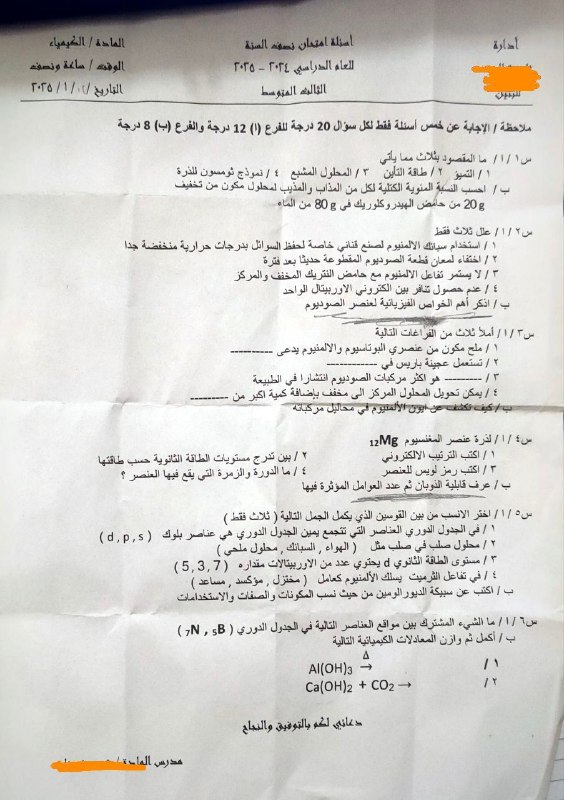 أدارة
أسئلة امتحان نصف السنة
المادة / الكيمياء
للعام الدراسي ٢٠٢٤ - ٢٠٢٥
الوقت / ساعة ونصف
للبنين
الثالث المتوسط
التاريخ / / ١ / ٢٠٢٥
ملاحظة / الاجابة عن خمس أسئلة فقط لكل سؤال 20 درجة للفرع (ا) 12 درجة والفرع (ب) 8 درجة
س١ / ا / ما المقصود بثلاث مما يأتي
١ / التميؤ ٢ / طاقة التأين ٣ / المحلول المشبع ٤ / نموذج ثومسون للذرة
ب / احسب النسبة المئوية الكتلية لكل من المذاب والمذيب لمحلول مكون من تخفيف
20 g من حامض الهيدروكلوريك في 80 g من الماء
س٢ / ا / علل ثلاث فقط
١ / استخدام سبائك الالمنيوم لصنع قناني خاصة لحفظ السوائل بدرجات حرارية منخفضة جدا
٢ / اختفاء لمعان قطعة الصوديوم المقطوعة حديثا بعد فترة
٣ / لا يستمر تفاعل الالمنيوم مع حامض النتريك المخفف والمركز
٤ / عدم حصول تنافر بين الكتروني الاوربيتال الواحد
ب / اذكر أهم الخواص الفيزيائية لعنصر الصوديوم
س٣ / ا / أملأ ثلاث من الفراغات التالية
١ / ملح مكون من عنصري البوتاسيوم والالمنيوم يدعى ----------
٢ / تستعمل عجينة باريس في ------------
٣ / --------- هو اكثر مركبات الصوديوم انتشارا في الطبيعة
٤ / يمكن تحويل المحلول المركز الى مخفف بإضافة كمية اكبر من ---------
ب / كيف تكشف عن ايون الألمنيوم في محاليل مركباته
س٤ / ا / لذرة عنصر المغنسيوم ₁₂Mg
١ / اكتب الترتيب الالكتروني ٢ / بين تدرج مستويات الطاقة الثانوية حسب طاقتها
٣ / اكتب رمز لويس للعنصر ٤ / ما الدورة والزمرة التي يقع فيها العنصر ؟
ب / عرف قابلية الذوبان ثم عدد العوامل المؤثرة فيها
س٥ / ا / اختر الانسب من بين القوسين الذي يكمل الجمل التالية ( ثلاث فقط )
١ / في الجدول الدوري العناصر التي تتجمع يمين الجدول الدوري هي عناصر بلوك ( d , p , s )
٢ / محلول صلب في صلب مثل ( الهواء , السبائك , محلول ملحي )
٣ / مستوى الطاقة الثانوي d يحتوي عدد من الاوربيتالات مقداره ( 5 , 3 , 7 )
٤ / في تفاعل الثرميت يسلك الألمنيوم كعامل ( مختزل , مؤكسد , مساعد )
ب / اكتب عن سبيكة الديورالومين من حيث نسب المكونات والصفات والاستخدامات
س٦ / ا / ما الشيء المشترك بين مواقع العناصر التالية في الجدول الدوري ( ₇N , ₅B )
ب / أكمل ثم وازن المعادلات الكيميائية التالية
١ / Al(OH)₃ Δ→
٢ / Ca(OH)₂ + CO₂ →
دعائي لكم بالتوفيق والنجاح
مدرس المادة /